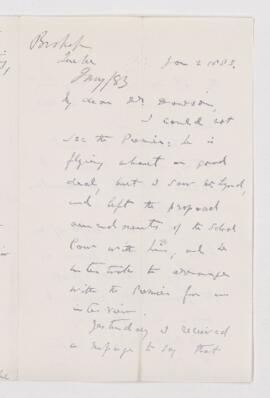 Bishop
Quebec
Jany/83
Jan 2 1883.
My dear Mr. Dawson,
I could not
see the Premier: he is
flying about an good
deal, but I saw Mr Lynch,
and left the proposed
amendments of the School
Law with him, and he
undertook to arrange
with the Premier for an
interview.
Yesterday I received
a message to say that